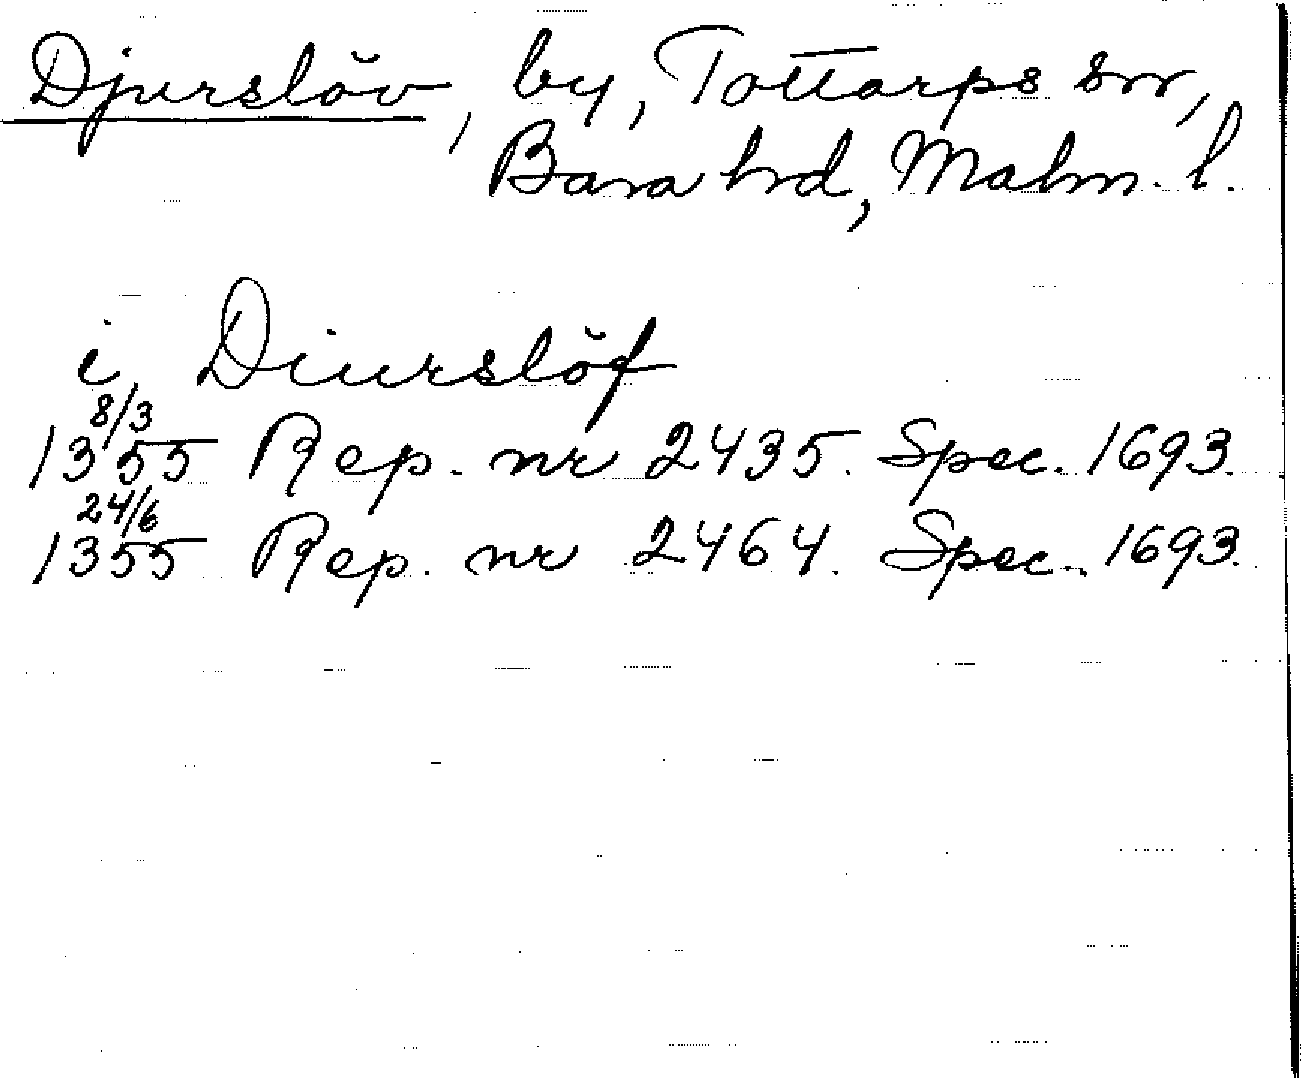 Djurslöv, by, Tottarps sn,
Bara hrd, Malm. l.
i Diurslöf
8/3
1355 Rep. nr 2435. Spec. 1693.
24/6
1355 Rep. nr 2464. Spec. 1693.